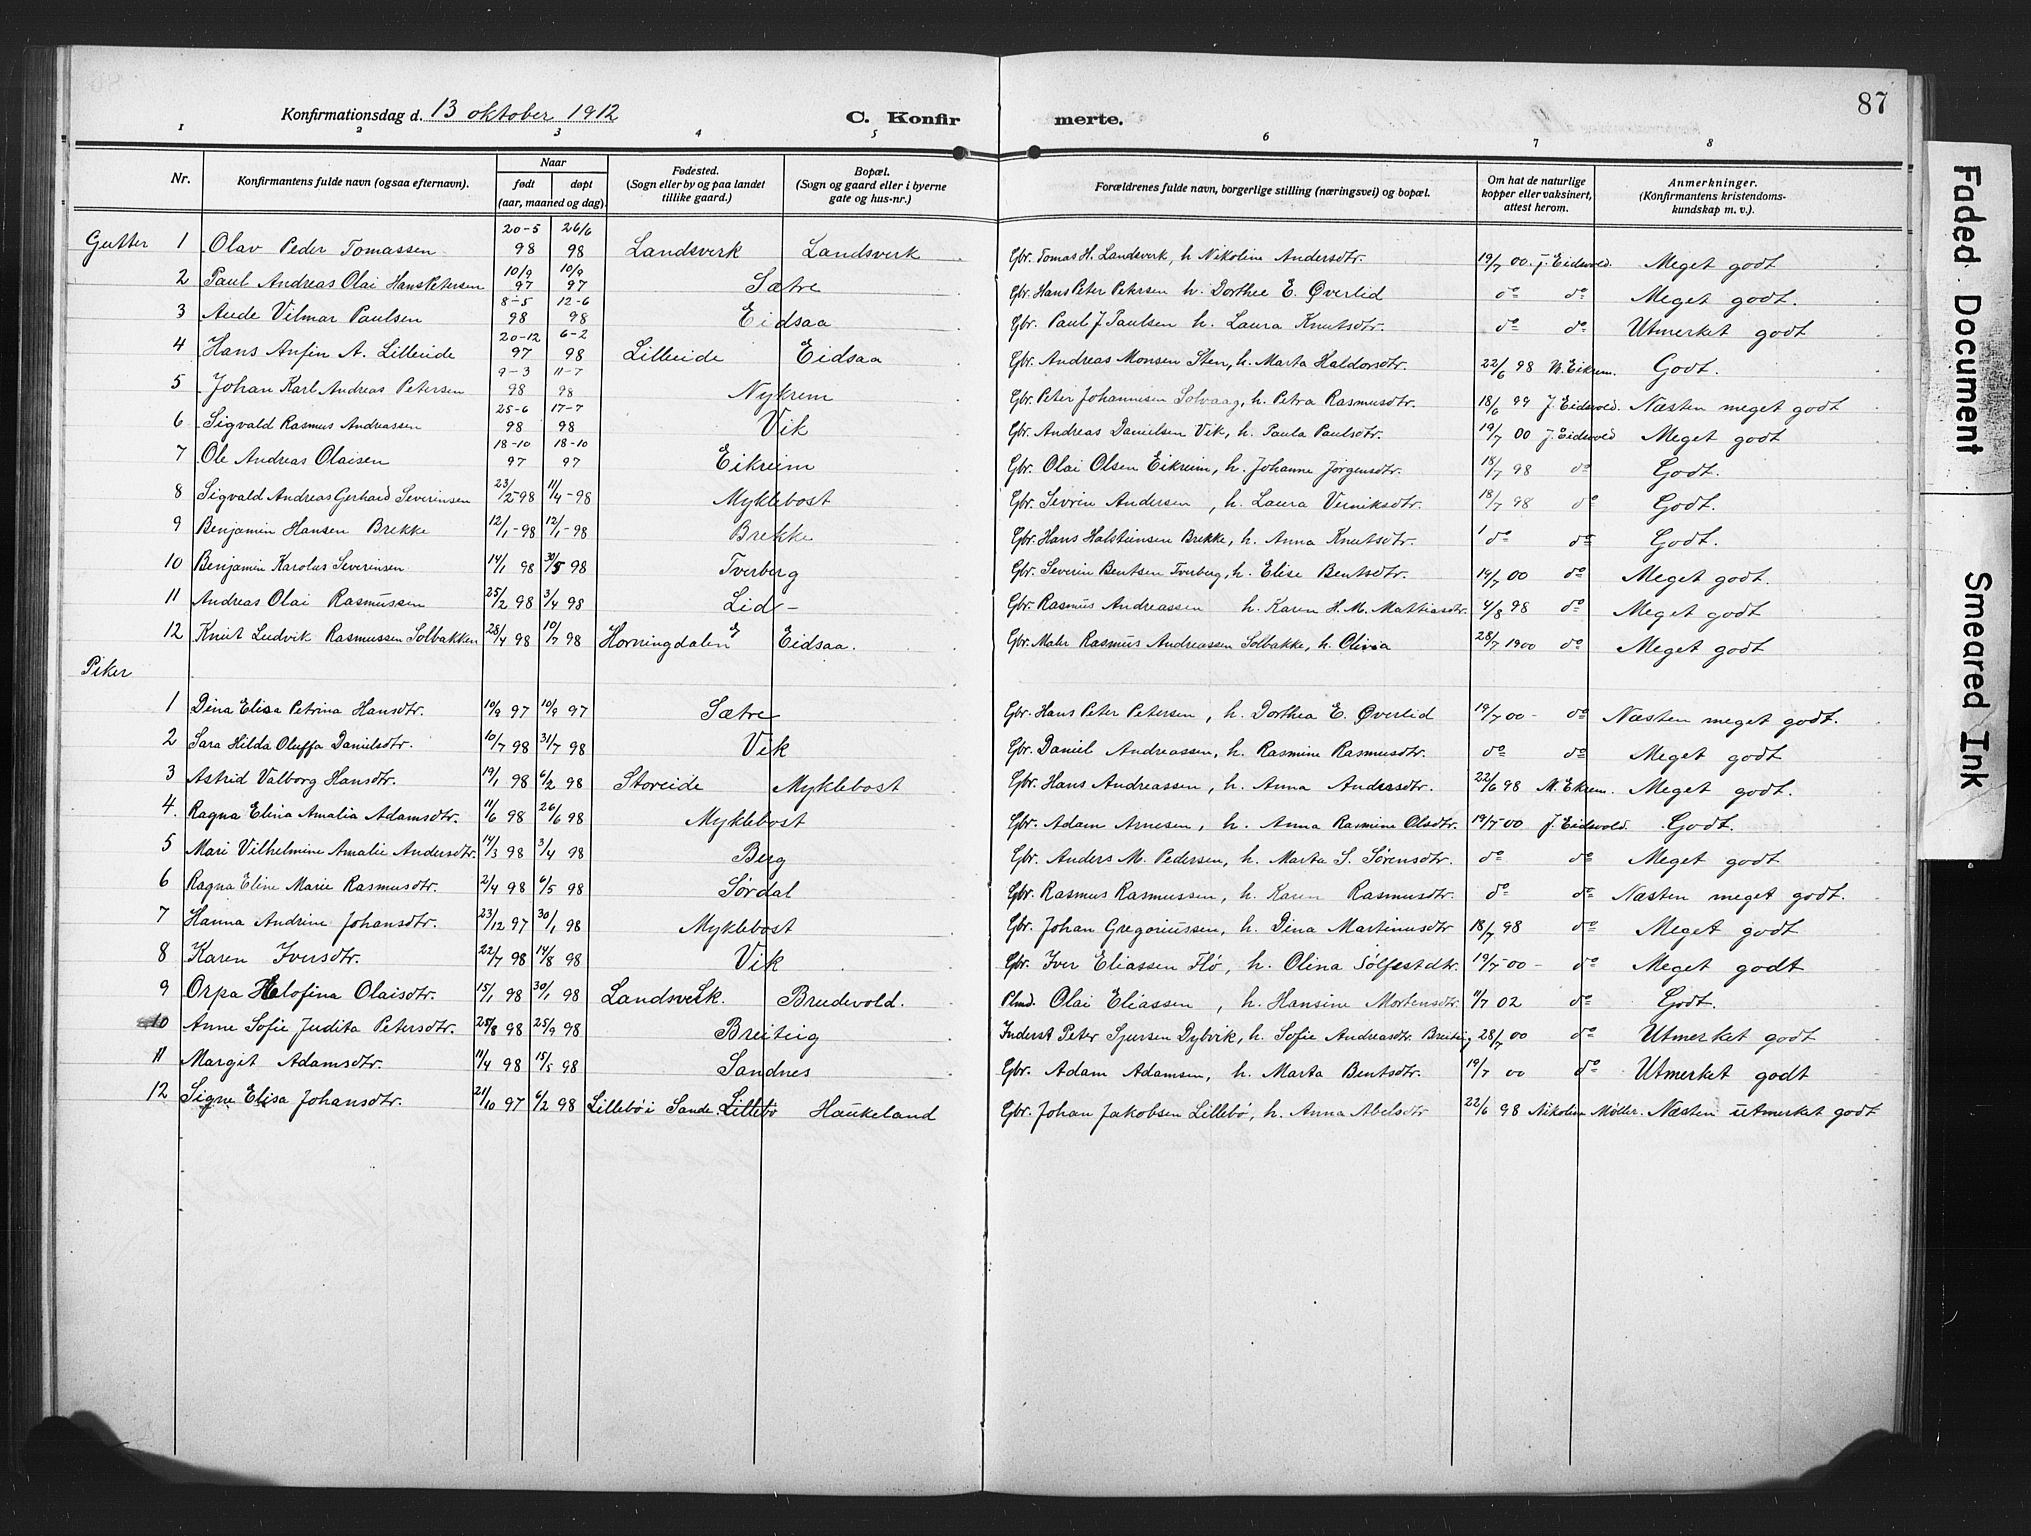 87
Konfirmationsdag d. 13 oktober 1912 C. Konfirmerte.
1 2 3 4 5 6 7 8
Nr. Konfirmantens fulde navn (ogsaa efternavn). Naar født døpt (aar, maaned og dag). Fødested. (Sogn eller by og paa landet tillike gaard.) Bopæl. (Sogn og gaard eller i byerne gate og hus-nr.) Forældrenes fulde navn, borgerlige stilling (næringsvei) og bopæl. Om hat de naturlige kopper eller vaksinert, attest herom. Anmerkninger. (Konfirmantens kristendomskundskap m. v.).
Gutter 1 Olav Peder Tomassen 20-5 98 26/6 98 Landsverk Landsverk Gbr. Tomas H. Landsverk, h. Nikoline Andersdtr. 19/7 00. J. Eidsvold. Meget godt
2 Paul Andreas Olai Hans Petersen 10/9 97 10/9 97 Sætre Gbr. Hans Peter Petersen h. Dorthee E. Øverlid do do Meget godt.
3 Aude Vilmar Paulsen 8-5 98 12-6 98 Eidsaa Gbr. Paul J. Paulsen h. Laura Knutsdtr. do do Utmerket godt
4 Hans Anfin A. Lilleide 20-12 97 6-2 98 Lilleide Eidsaa Gbr. Andreas Monsen Sten, h. Marta Haldorsdtr. 22/6 98 N. Eikrem. Godt.
5 Johan Karl Andreas Petersen 9-3 98 11-7 98 Nykrem Gbr. Peter Johannesen Solvaag, h. Petra Rasmusdtr. 18/6 99 J. Eidsvold. Næsten meget godt
6 Sigvald Rasmus Andreassen 25-6 98 17-7 98 Vik Gbr. Andreas Danielsen Vik, h. Paula Paulsdtr. 19/7 00 J. Eidsvold Meget godt
7 Ole Andreas Olaisen 18-10 97 18-10 97 Eikreim Gbr. Olai Olsen Eikreim, h. Johanne Jørgensdtr. 18/7 98 do Godt.
8 Sigvald Andreas Gerhard Severinsen 23/2-98 11/4-98 Myklebost Gbr. Sevrin Andersen, h. Laura Verniksdtr. 18/7 98 do Godt.
9 Benjamin Hansen Brekke 12/1-98 12/1-98 Brekke Gbr. Hans Halsteinsen Brekke, h. Anna Knutsdtr. do do Godt.
10 Benjamin Karolus Severinsen 14/1 98 30/5 98 Tverberg Gbr. Severin Bentsen Tverberg, h. Elise Bentsdtr. 19/7 00 do Meget godt.
11 Andreas Olai Rasmussen 25/2 98 3/4 98 Lid - Gbr. Rasmus Andreassen h. Karen H. M. Mattiasdtr. 4/8 98 do Meget godt
12 Knut Ludvik Rasmussen Solbakken 28/4 98 10/7 98 Horningdalen Eidsaa. Gbr. Rasmus Andreassen Solbakke, h. Olivia 28/7 1900 do Meget godt
Piker
1 Dina Elisa Petrina Hansdtr. 10/9 97 10/9 97 Sætre Gbr. Hans Peter Petersen, h. Dorthea E. Øverlid 19/7 00 - do Næsten meget godt.
2 Sara Hilda Oluffa Danielsdtr. 10/7 98 31/7 98 Vik Gbr. Daniel Andreassen, h. Rasmine Rasmusdtr. do do Meget godt
3 Astrid Valborg Hansdtr. 19/1 98 6/2 98 Storeide Myklebost Gbr. Hans Andreassen, h. Anna Andersdtr. 22/6 98 N. Ekrem. Meget godt.
4. Ragna Elina Amalia Adamsdtr. 11/6 98 26/6 98 Myklebost Gbr. Adam Arnesen, h. Anna Rasmine Olsdtr. 19/7 00 J. Eidsvold. Godt.
5 Mari Vilhelmine Amalie Andersdtr. 14/3 98 3/4 98 Berg Gbr. Anders M. Pedersen, h. Marta S. Sørensdtr. do do Meget godt
6 Ragna Eline Marie Rasmusdtr. 2/4 98 6/5 98 Sørdal Gbr. Rasmus Rasmussen, h. Karen Rasmusdtr. do do Næsten meget godt.
7 Hanna Andrine Johansdtr. 23/12 97 30/1 98 Myklebost Gbr. Johan Gregoriussen, h. Dina Martinusdtr 18/7 98 do Meget godt
8 Karen Iversdtr. 22/7 98 14/8 98 Vik Gbr. Iver Eliassen Flø, h. Olina Sølfestdtr. 19/7 00 - do Meget godt
9 Orpa Elofina Olaisdtr. 15/1 98 30/1 98 Landsverk. Breidevold. Plmd. Olai Eliassen, h. Hansine Mortensdtr. 11/7 02 do Godt.
10 Anne Sofie Judita Petersdtr. 25/8 98 25/9 98 Breiteig Inderst Peter Sjursen Dybvik, h. Sofie Andreasdtr. Breiteig 28/7 00 do Utmerket godt
11 Marget Adamsdtr. 11/4 98 15/5 98 Sandnes Gbr. Adam Adamsen, h. Marta Bentsdtr. 19/7 00 do Utmerket godt
12 Signe Elisa Johansdtr. 21/10 97 6/2 98 Lillebø i Sande. Lillebø Haukeland Gbr. Johan Jakobsen Lillebø, h. Anna Abelsdtr 22/6 98 Nikolai Møller. Næsten utmerket godt
Faded Document
Smeared Ink